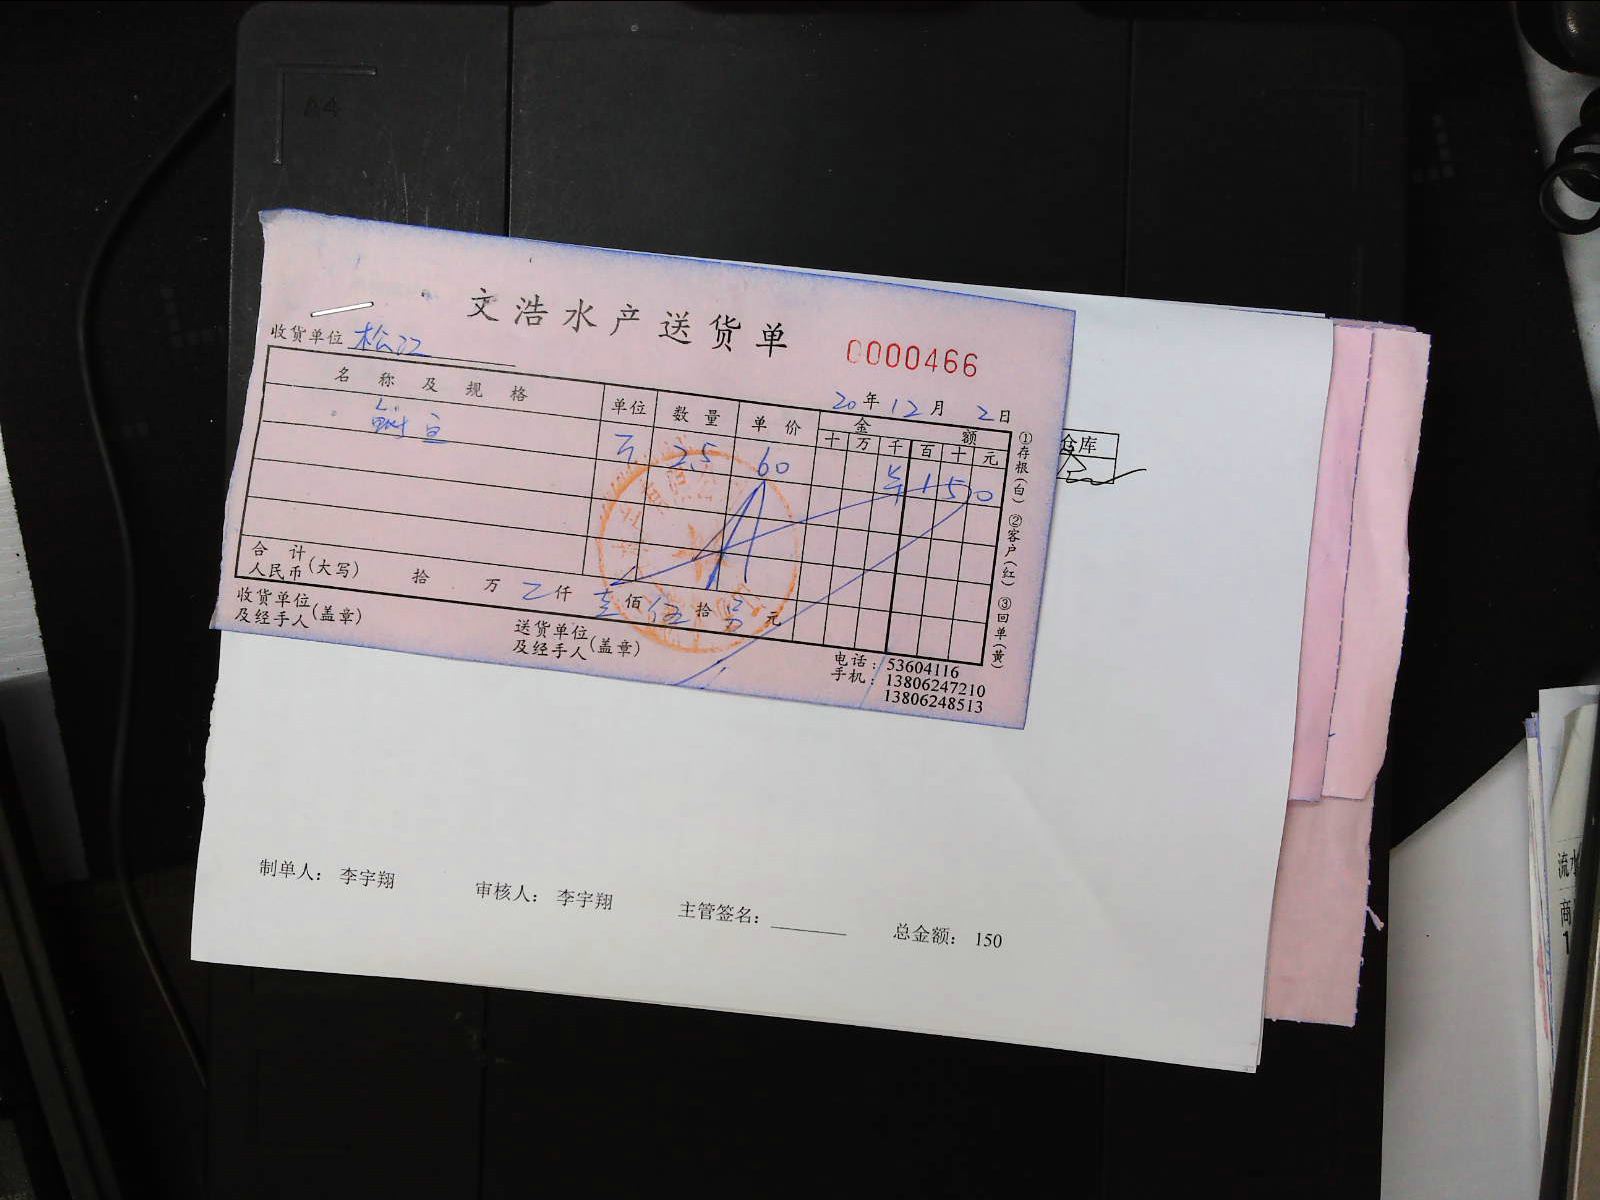 A4
文浩水产送货单
0000466
收货单位 松江
20年12月2日
名称及规格 单位 数量 单价 金额
十 万 千 百 十 元
2.5 60 150
合计
人民币(大写) 拾 万 仟 壹佰 伍拾 元
收货单位
及经手人(盖章)
送货单位
及经手人(盖章)
电话:53604116
手机:13806247210
13806248513
①存根(白) ②客户(红) ③回单(黄)
仓库
制单人: 李宇翔 审核人: 李宇翔 主管签名: 总金额: 150
流水
商